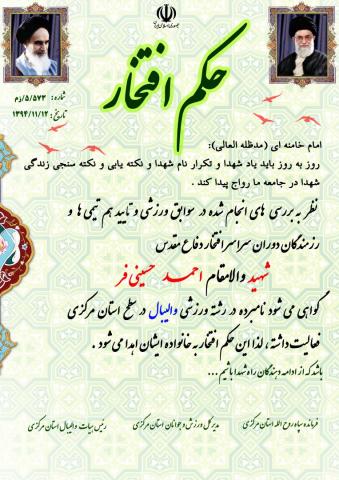 جمهوری اسلامی ایران
حکم افتخار
شماره: ۵/۵۷۳/زم
تاریخ: ۱۳۹۴/۱۱/۱۲
امام خامنه ای (مدظله العالی):
روز به روز باید یاد شهدا و تکرار نام شهدا و نکته یابی و نکته سنجی زندگی
شهدا در جامعه ما رواج پیدا کند .
نظر به بررسی های انجام شده در سوابق ورزشی و تایید هم تیمی ها و
رزمندگان دوران سراسر افتخار دفاع مقدس
شهید والامقام احمد حسینی فر
گواهی می شود نامبرده در رشته ورزشی والیبال در سطح استان مرکزی
فعالیت داشته ، لذا این حکم افتخار به خانواده ایشان اهدا می شود .
باشد که از ادامه دهندگان راه شهدا باشیم ...
فرمانده سپاه روح الله استان مرکزی
مدیر کل ورزش و جوانان استان مرکزی
رئیس هیات والیبال استان مرکزی